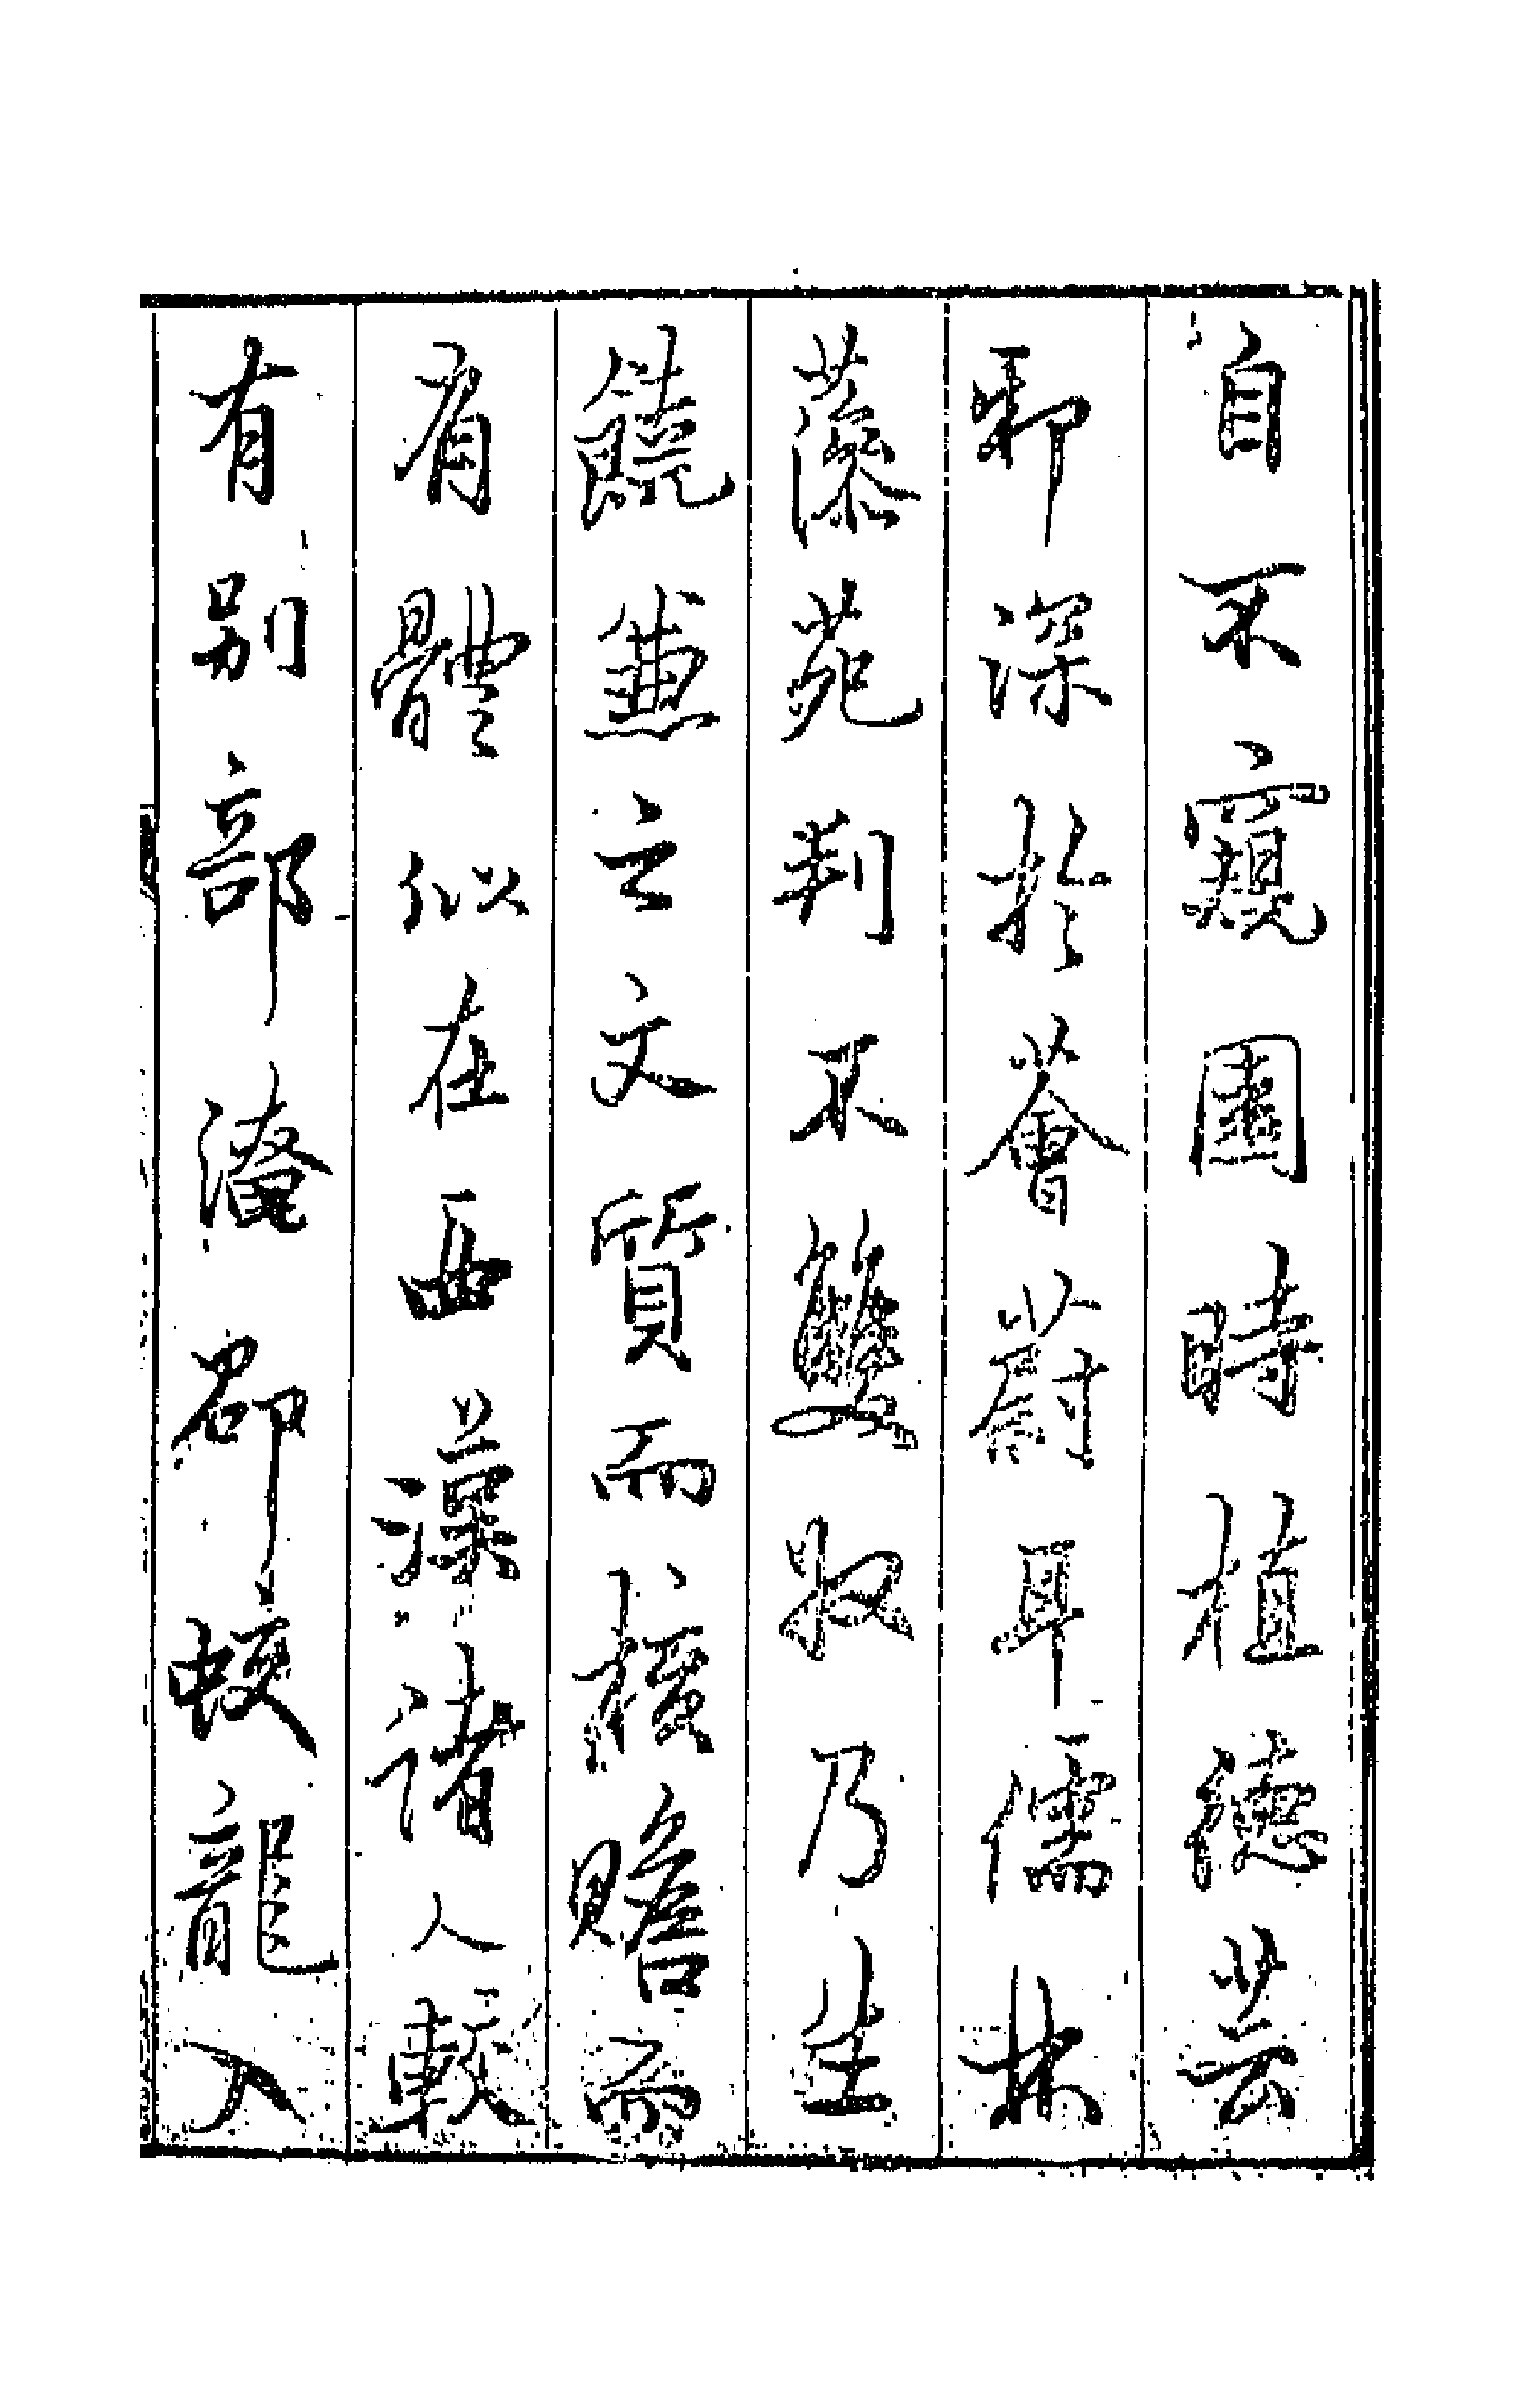 自不窺園時植德芸
郁深於薈蔚耳儒林
藻苑判不雙收乃生
饒兼之文質而核贍而
有體似在西漢諸人較
有別部淹卻蛟龍入